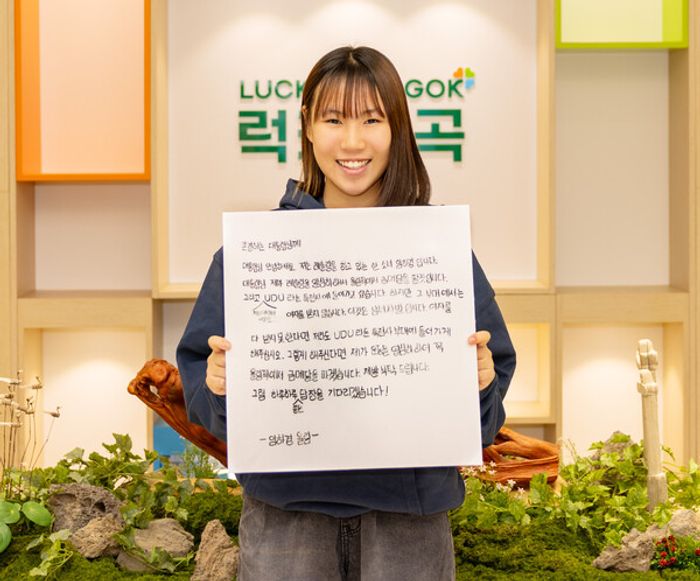 LUCK GOK
럭 곡
존경하는 대통령님께
대통령님 안녕하세요. 저는 레슬링을 하고 있는 한 소녀 임하경 입니다.
대통령님 제가 레슬링 열심히해서 올림픽에서 금메달을 딸것입니다.
그리고 UDU 라는 특전사에 들어가고 싶습니다. 하지만 그 부대에서는
여자를 받지 않습니다. 이것은 남녀차별 입니다. 여자를
다 받지 못한다면 저라도 UDU 라는 특전사 부대에 들어가게
해주십시오. 그렇게 해주신다면 제가 운동을 열심히 하여 꼭
올림픽에서 금메달을 따겠습니다. 제발 부탁 드립니다.
그럼 하루하루 답장을 기다리겠습니다!
-임하경 올림-